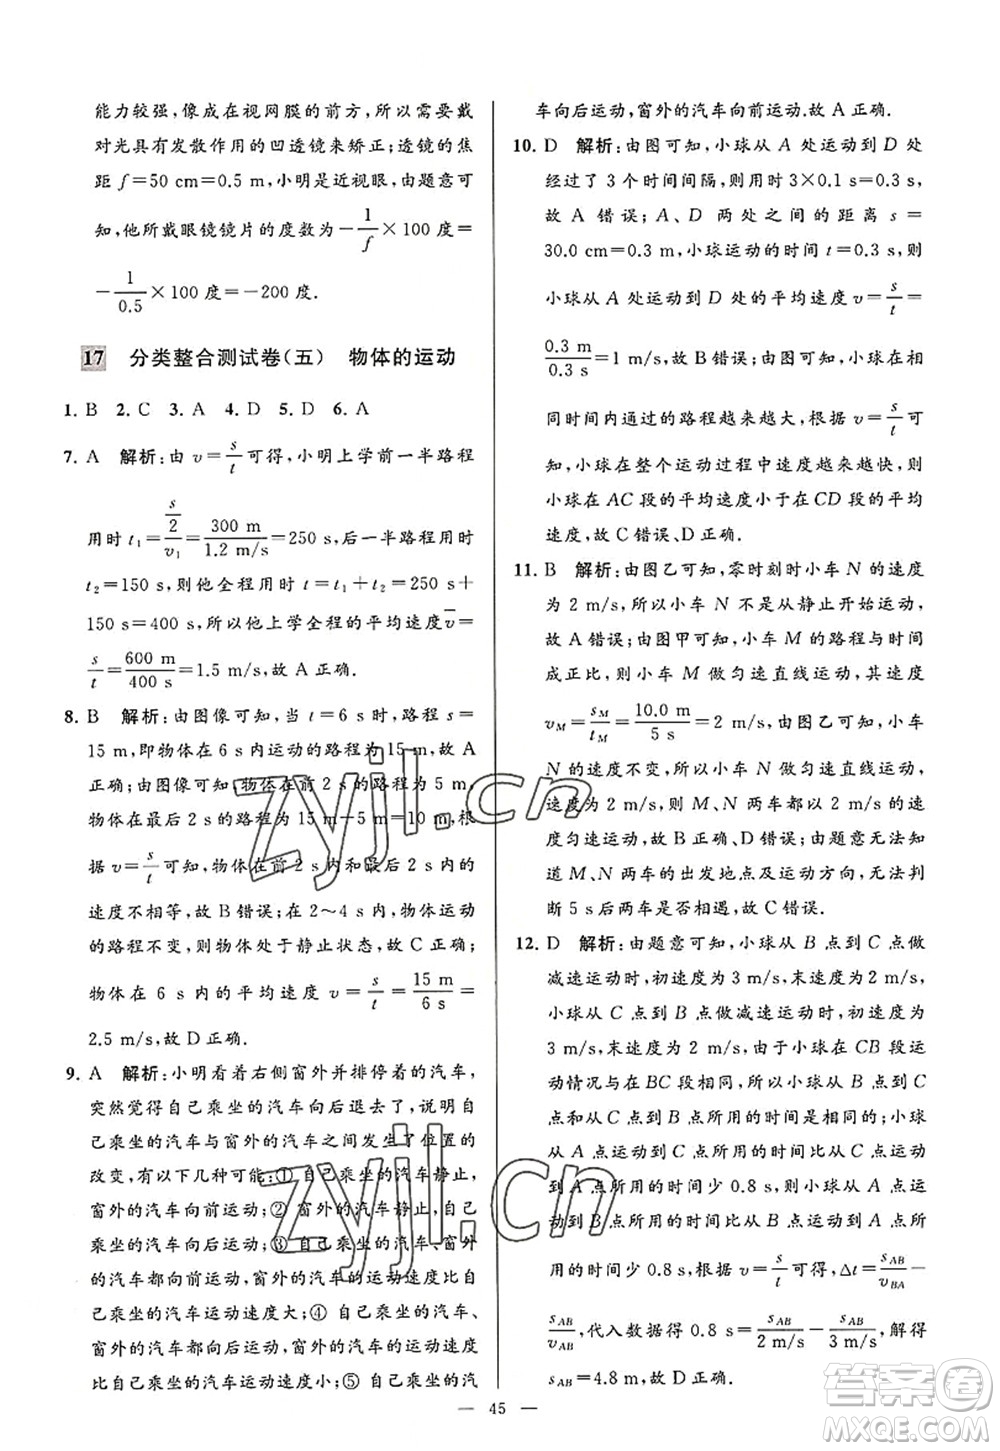 能力较强,像成在视网膜的前方,所以需要戴
对光具有发散作用的凹透镜来矫正;透镜的焦
距 f=50 cm=0.5 m,小明是近视眼,由题意可
知,他所戴眼镜镜片的度数为-1/f×100 度=
-1/0.5×100 度=-200 度.
17 分类整合测试卷(五) 物体的运动
1. B 2. C 3. A 4. D 5. D 6. A
7. A 解析:由 v=s/t可得,小明上学前一半路程
用时 t₁=(s/2)/v₁=300 m/1.2 m/s=250 s,后一半路程用时
t₂=150 s,则他全程用时 t=t₁+t₂=250 s+
150 s=400 s,所以他上学全程的平均速度v̅=
s/t=600 m/400 s=1.5 m/s,故 A 正确.
8. B 解析:由图像可知,当 t=6 s时,路程 s=
15 m,即物体在 6 s内运动的路程为15 m,故 A
正确;由图像可知,物体在前 2 s的路程为 5 m,
物体在最后 2 s的路程为 15 m-5 m=10 m,根
据 v=s/t可知,物体在前 2 s和最后 2 s内的
速度不相等,故 B 错误;在 2~4 s内,物体运动
的路程不变,则物体处于静止状态,故 C 正确;
物体在 6 s内的平均速度 v=s/t=15 m/6 s=
2.5 m/s,故 D 正确.
9. A 解析:小明看着右侧窗外并排停着的汽车,
突然觉得自己乘坐的汽车向后退去了,说明自
己乘坐的汽车与窗外的汽车之间发生了位置的
改变,有以下几种可能:① 自己乘坐的汽车静止,
窗外的汽车向前运动;② 自己乘坐的汽车向后运动,
窗外的汽车静止;③ 自己乘坐的汽车、窗外
的汽车都向前运动,窗外的汽车运动速度比自
己乘坐的汽车运动速度大;④ 自己乘坐的汽车、
窗外的汽车都向后运动,自己乘坐的汽车运动速度
比窗外的汽车运动速度大;⑤ 自己乘坐的汽
车向后运动,窗外的汽车向前运动.故 A 正确.
10. D 解析:由图可知,小球从 A 处运动到 D 处
经过了 3 个时间间隔,则用时 3×0.1 s=0.3 s,
故 A 错误;A、D 两处之间的距离 s=
30.0 cm=0.3 m,小球运动的时间 t=0.3 s,则
小球从 A 处运动到 D 处的平均速度 v=s/t=
0.3 m/0.3 s=1 m/s,故 B 错误;由图可知,小球在相
同时间内通过的路程越来越大,根据 v=s/t可
知,小球在整个运动过程中速度越来越快,则
小球在 AC 段的平均速度小于在 CD 段的平均
速度,故 C 错误、D 正确.
11. B 解析:由图乙可知,零时刻时小车 N 的速度
为 2 m/s,所以小车 N 不是从静止开始运动,
故 A 错误;由图甲可知,小车 M 的路程与时间
成正比,则小车 M 做匀速直线运动,其速度
v_M=s_M/t_M=10.0 m/5 s=2 m/s,由图乙可知,小车
N 的速度不变,所以小车 N 做匀速直线运动,
速度为 2 m/s,则 M、N 两车都以 2 m/s的速
度匀速运动,故 B 正确、D 错误;由题意无法知
道 M、N 两车的出发地点及运动方向,无法判
断 5 s后两车是否相遇,故 C 错误.
12. D 解析:由题意可知,小球从 B 点到 C 点做
减速运动时,初速度为 3 m/s,末速度为 2 m/s,
小球从 A 点到 B 点做减速运动时,初速度为
3 m/s,末速度为 2 m/s,由于小球在 CB 段运
动情况与在 BC 段相同,所以小球从 B 点到 C
点和从 C 点到 B 点所用的时间是相同的;小球
从 A 点到 C 点所用的时间比小球从 C 点运动
到 A 点所用的时间少 0.8 s,则小球从 A 点运
动到 B 点所用的时间比从 B 点运动到 A 点所
用的时间少 0.8 s,根据 v=s/t可得,Δt=s_AB/v_BA-
s_AB/v_AB,代入数据得 0.8 s=s_AB/2 m/s-s_AB/3 m/s,解得
s_AB=4.8 m,故 D 正确.
— 45 —
zyjl.cn
zyjl.cn
答案圈
MXQE.COM